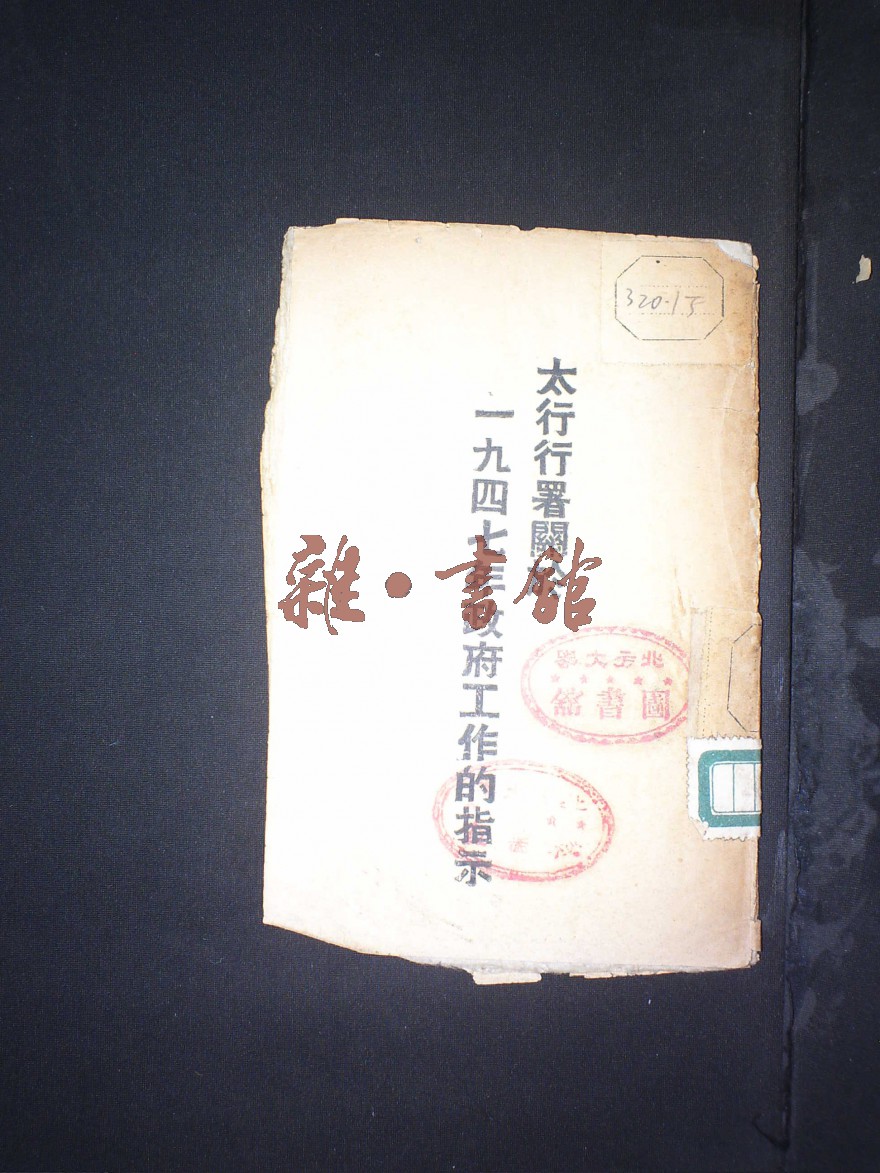 320·15
太行行署關於
一九四七年政府工作的指示
雜·書館
北方大學
圖書館